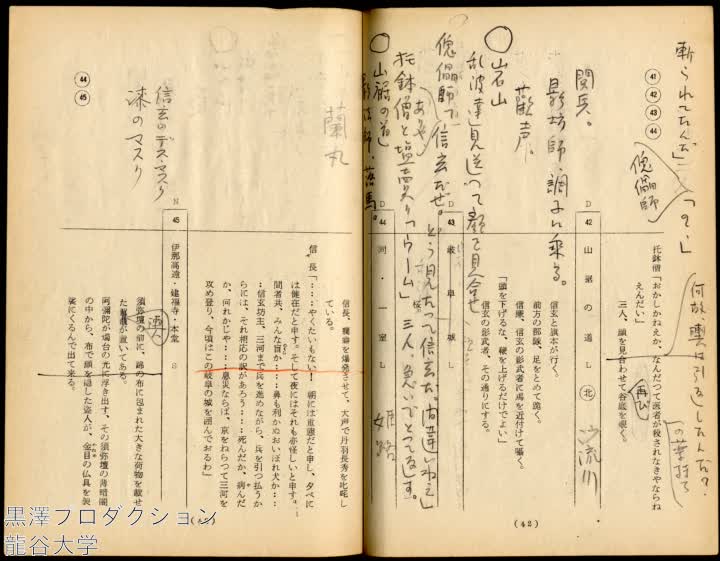 斬られてたんだ」「の、」
41
42
43
44
傀儡師
托鉢僧「おかしかねえか、なんだって医者が殺されなきやならねえんだい」
三人、顔を見合わせて谷底を覗く。
再び
閲兵。
影坊師、調子に乗る。
歓声。
D
42
山裾の道
北
信玄と旗本が行く。
前方の部隊、足をとめて跪く。
信廉、信玄の影武者に馬を近付けて囁く。
「頭を下げるな、鞭を上げるだけでよい」
信玄の影武者、その通りにする。
岩山
乱波達見送って顔を見合せ
D
43
岐阜城
傀儡師
信玄だぜ。
どう見たって信玄だ。間違いねえ」
托鉢僧と塩売り「ウーム」
三人、急いでとって返す。
山裾の道
落馬。
D
44
同・一室
姫路
(42)
蘭丸
信長、癇癖を爆発させて、大声で丹羽長秀を叱咤している。
信長「……やくたいもない！ 朝には重態だと申し、夕べには健在だと申す。そして夜にはそれも亦怪しいと申す。間者共、みんな盲か……鼻も利かぬおいぼれ犬か……信玄坊主、三河まで兵を進めながら、兵を引つ払うからには、それ相応の訳があろう……死んだか、病んだか、何れかじや……息災ならば、京をねらつて三河を攻め登り、今頃はこの岐阜の城を囲んでおるわ」
44
45
信玄のデス・マスク
漆のマスク
N
45
伊那高遠・建福寺・本堂
S
須弥壇の前に、錦の布に包まれた大きな荷物を載せた
が置いてある。
阿彌陀が燭台の光に浮き出す、その須弥壇の薄暗闇の中から、布で顔を隠した盗人が、金目の仏具を袈裟にくるんで出て来る。
黒澤プロダクション
龍谷大学